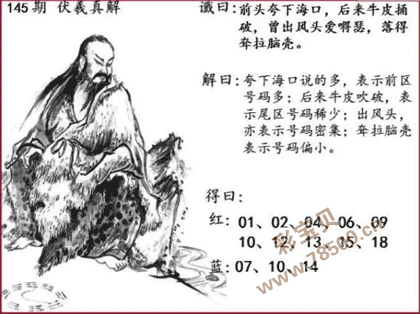 145期 伏羲真解
谶曰：前头夸下海口，后来牛皮捅
破，曾出风头爱嘚瑟，落得
耷拉脑壳。
解曰：夸下海口说的多，表示前区
号码多；后来牛皮吹破，表
示尾区号码稀少；出风头，
亦表示号码密集；耷拉脑壳
表示号码偏小。
得曰：
红：01、02、04、06、09
10、12、13、15、18
蓝：07、10、14
彩宝贝
www.78500.cn